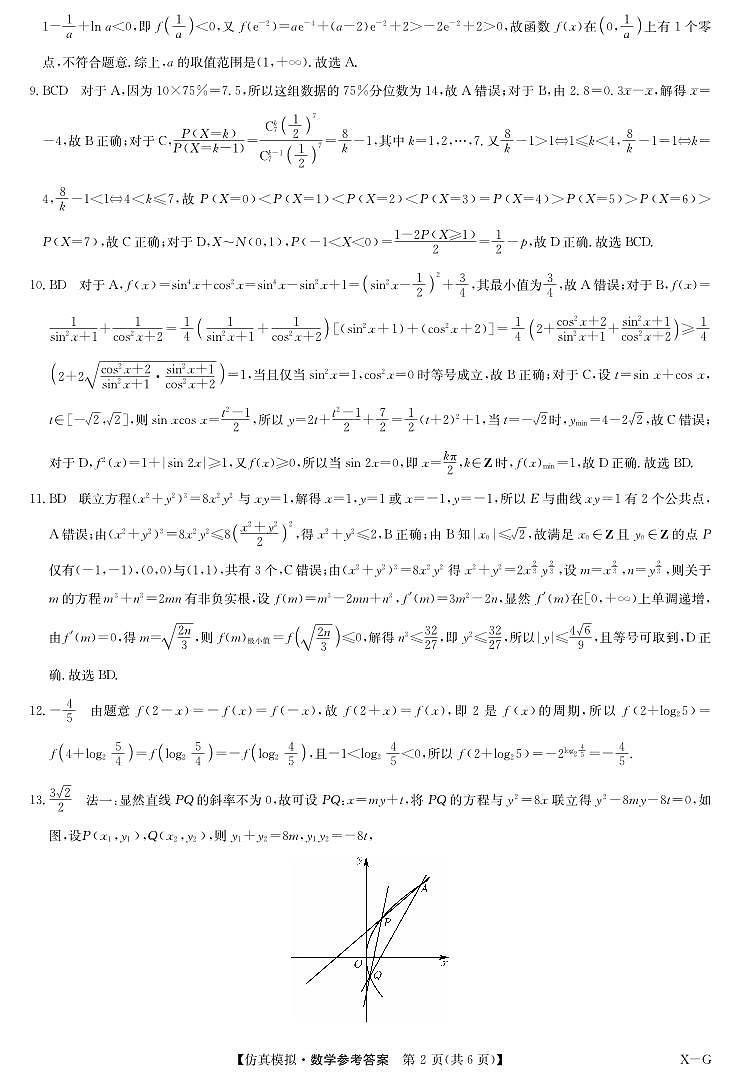 1－1/a＋ln a<0,即 f(1/a)<0,又 f(e⁻²)=ae⁻⁴+(a−2)e⁻²+2>−2e⁻²+2>0,故函数 f(x)在(0,1/a)上有 1 个零
点,不符合题意.综上,a 的取值范围是(1,+∞).故选 A.
9. BCD　对于 A,因为 10×75%=7.5,所以这组数据的 75%分位数为 14,故 A 错误;对于 B,由 2.8=0.3x̄−x,解得 x=
−4,故 B 正确;对于 C,P(X=k)/P(X=k−1)=C₇ᵏ(1/2)⁷/C₇ᵏ⁻¹(1/2)⁷=8/k−1,其中 k=1,2,…,7.又8/k−1>1⇔1≤k<4,8/k−1=1⇔k=
4,8/k−1<1⇔4<k≤7,故 P(X=0)<P(X=1)<P(X=2)<P(X=3)=P(X=4)>P(X=5)>P(X=6)>
P(X=7),故 C 正确;对于 D,X~N(0,1),P(−1<X<0)=(1−2P(X≥1))/2=1/2−p,故 D 正确.故选 BCD.
10. BD　对于 A,f(x)=sin⁴x+cos²x=sin⁴x−sin²x+1=(sin²x−1/2)²+3/4,其最小值为3/4,故 A 错误;对于 B,f(x)=
1/(sin²x+1)+1/(cos²x+2)=1/4(1/(sin²x+1)+1/(cos²x+2))[(sin²x+1)+(cos²x+2)]=1/4(2+(cos²x+2)/(sin²x+1)+(sin²x+1)/(cos²x+2))≥1/4
(2+2√((cos²x+2)/(sin²x+1)·(sin²x+1)/(cos²x+2)))=1,当且仅当 sin²x=1,cos²x=0 时等号成立,故 B 正确;对于 C,设 t=sin x+cos x,
t∈[−√2,√2],则 sin xcos x=(t²−1)/2,所以 y=2t+(t²−1)/2+7/2=1/2(t+2)²+1,当 t=−√2时,yₘᵢₙ=4−2√2,故 C 错误;
对于 D,f²(x)=1+|sin 2x|≥1,又 f(x)≥0,所以当 sin 2x=0,即 x=kπ/2,k∈Z 时,f(x)ₘᵢₙ=1,故 D 正确.故选 BD.
11. BD　联立方程(x²+y²)³=8x²y² 与 xy=1,解得 x=1,y=1 或 x=−1,y=−1,所以 E 与曲线 xy=1 有 2 个公共点,
A 错误;由(x²+y²)³=8x²y²≤8((x²+y²)/2)²,得 x²+y²≤2,B 正确;由 B 知|x₀|≤√2,故满足 x₀∈Z 且 y₀∈Z 的点 P
仅有(−1,−1),(0,0)与(1,1),共有 3 个,C 错误;由(x²+y²)³=8x²y² 得 x²+y²=2x^(2/3)y^(2/3),设 m=x^(2/3),n=y^(2/3),则关于
m 的方程 m³+n³=2mn 有非负实根,设 f(m)=m³−2mn+n³,f′(m)=3m²−2n,显然 f′(m)在[0,+∞)上单调递增,
由 f′(m)=0,得 m=√(2n/3),则 f(m)极小值=f(√(2n/3))≤0,解得 n³≤32/27,即 y²≤32/27,所以|y|≤4√6/9,且等号可取到,D 正
确.故选 BD.
12. −4/5　由题意 f(2−x)=−f(x)=f(−x),故 f(2+x)=f(x),即 2 是 f(x)的周期,所以 f(2+log₂5)=
f(4+log₂ 5/4)=f(log₂ 5/4)=−f(log₂ 4/5),且−1<log₂ 4/5<0,所以 f(2+log₂5)=−2^(log₂ 4/5)=−4/5.
13. 3√2/2　法一:显然直线 PQ 的斜率不为 0,故可设 PQ:x=my+t,将 PQ 的方程与 y²=8x 联立得 y²−8my−8t=0,如
图,设P(x₁,y₁),Q(x₂,y₂),则 y₁+y₂=8m,y₁y₂=−8t,
y
A
P
O
x
Q
【仿真模拟·数学参考答案　第 2 页(共 6 页)】
X－G